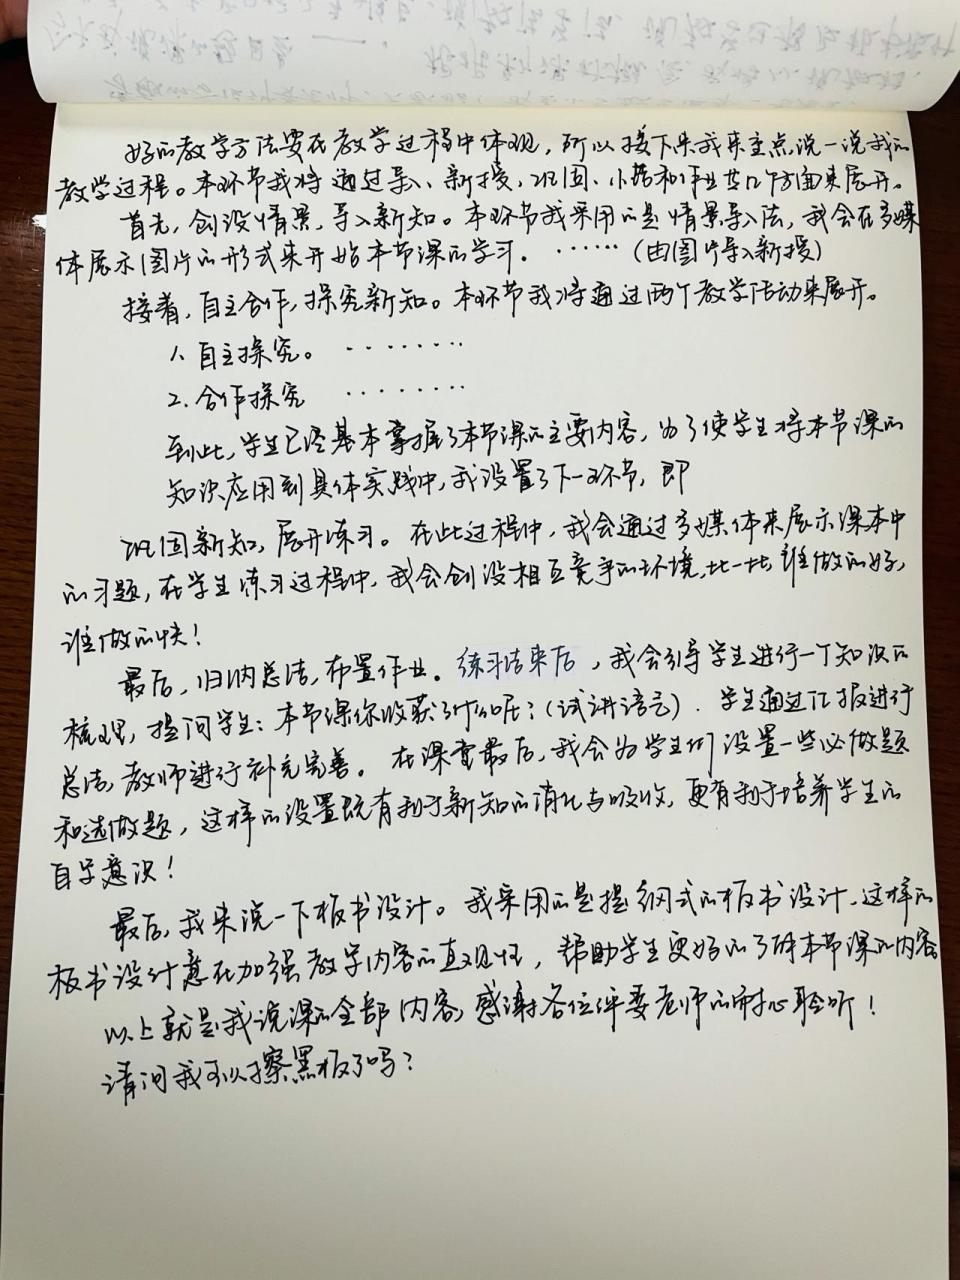 好的教学方法要在教学过程中体现，所以接下来我来重点说一说我的
教学过程。本环节我将通过导入、新授、巩固、小结和作业共几个方面来展开。
首先，创设情景，导入新知。本环节我采用的是情景导入法，我会在多媒
体展示图片的形式来开始本节课的学习。……（由图片导入新授）
接着，自主合作，探究新知。本环节我将通过两个教学活动来展开。
1、自主探究。 ……
2、合作探究 ……
到此，学生已经基本掌握了本节课的主要内容，为了使学生将本节课的
知识应用到具体实践中，我设置了下一环节，即
巩固新知，展开练习。在此过程中，我会通过多媒体来展示课本中
的习题，在学生练习过程中，我会创设相互竞争的环境，比一比谁做的好，
谁做的快！
最后，归纳总结，布置作业。练习结束后，我会引导学生进行一个知识的
梳理，提问学生：本节课你收获了什么呢？（试讲语言）. 学生通过汇报进行
总结，教师进行补充完善。在课堂最后，我会为学生们设置一些必做题
和选做题，这样的设置既有利于新知的消化与吸收，更有利于培养学生的
自学意识！
最后，我来说一下板书设计。我采用的是提纲式的板书设计，这样的
板书设计意在加强教学内容的直观性，帮助学生更好的了解本节课的内容。
以上就是我说课的全部内容，感谢各位评委老师的耐心聆听！
请问我可以擦黑板了吗？